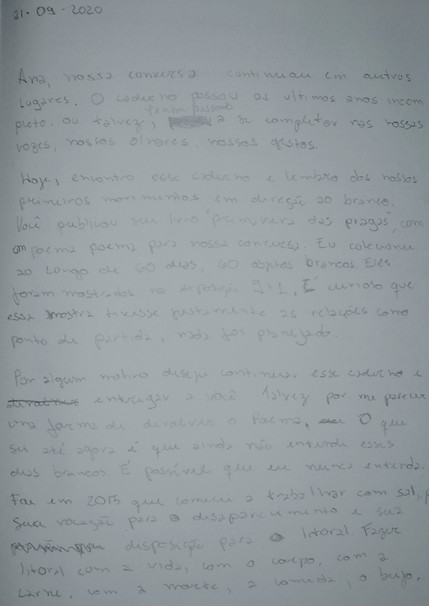 21·09·2020
Ana, nossa conversa continuou em outros
lugares. O caderno passou os ultimos anos incom
pleto. ou talvez, tenha passado a se completar nas nossas
vozes, nossos olhares, nossos gestos.
Hoje, encontro esse caderno e lembro dos nossos
primeiros movimentos em direção ao branco.
Você publicou seu livro "primavera das pragas", com
um poema poema para nossa conversa. Eu colecionei
ao longo de 60 dias, 60 objetos brancos. Eles
foram mostrados na exposição 1+1. É curioso que
essa mostra tivesse justamente as relações como
ponto de partida, não foi planejado.
Por algum motivo desejo continuar esse caderno e
entregar a você. Talvez por me parecer
uma forma de devolver o Poema. O que
sei até agora é que ainda não entendi esses
dias brancos. É possível que eu nunca entenda.
Foi em 2015 que comecei a trabalhar com sal,
sua vocação para o desaparecimento e sua
disposição para o litoral. Fazer
litoral com a vida, com o corpo, com a
carne, com a morte, a comida, o beijo.